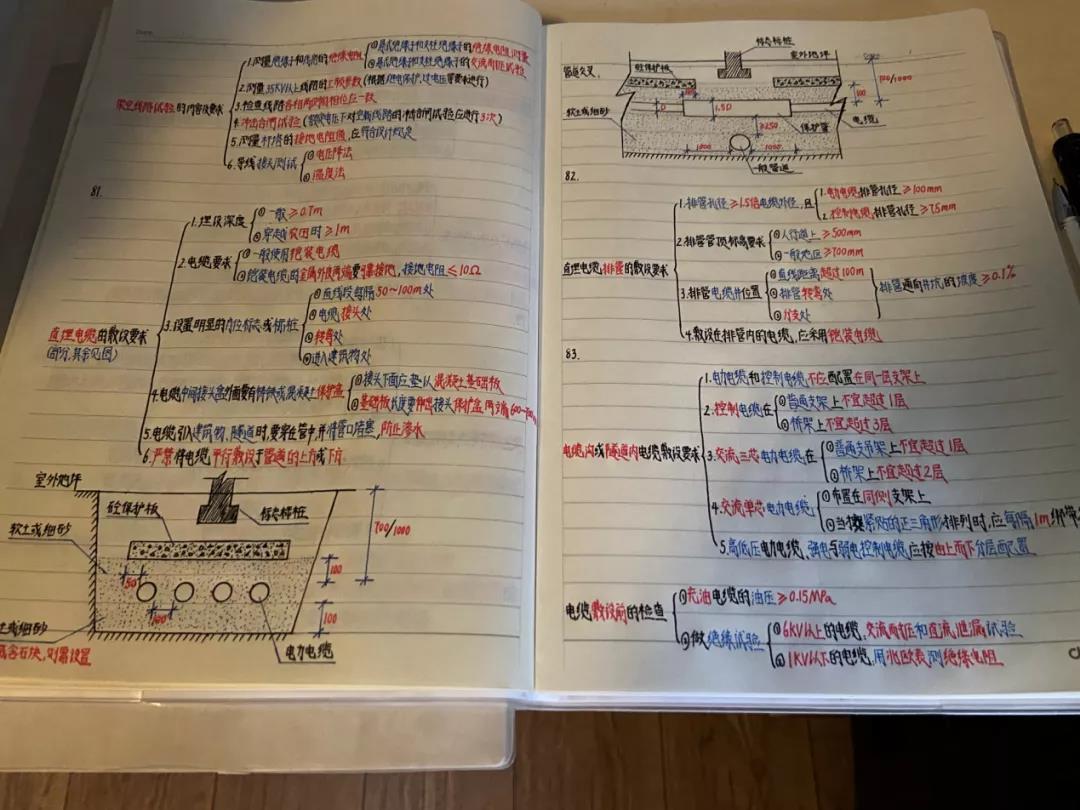 架空线路试验的内容及要求
1.测量绝缘子和线路的绝缘电阻
①悬式绝缘子和支柱绝缘子的绝缘电阻测量
②悬式绝缘子和支柱绝缘子的交流耐压试验
2.测量35KV以上线路的工频参数(根据继电保护、过电压等要求进行)
3.检查线路各相两侧相位应一致
4.冲击合闸试验(额定电压下对空载线路的冲击合闸试验应进行3次)
5.测量杆塔的接地电阻值,应符合设计规定
6.导线接头测试
①电压降法
②温度法
81.
直埋电缆的敷设要求
(部分,其余见图)
1.埋设深度
①一般≥0.7m
②穿越农田时≥1m
2.电缆要求
①一般使用铠装电缆
②铠装电缆的金属外皮两端要可靠接地,接地电阻≤10Ω
3.设置明显的方位标志或标桩
①直线段每隔50~100m处
②电缆接头处
③转弯处
④进入建筑物处
4.电缆中间接头盒外面要有铸铁或混凝土保护盒
①接头下面应垫以混凝土基础板
②基础板长度要伸出接头保护盒两端600~700mm
5.电缆引入建筑物、隧道时,要穿在管中,并将管口堵塞,防止渗水
6.严禁将电缆平行敷设于管道的上方或下方
室外地坪
砼保护板
标志标桩
软土或细砂
700/1000
100
50
100
100
软土或细砂
电力电缆
管道交叉.
标志标桩
砼保护板
室外地坪
700/1000
100
软土或细砂
D
1.5D
≥250
保护管
电缆
1000
1000
一般管道
82.
直埋电缆排管的敷设要求
1.排管孔径≥1.5倍电缆外径,且
1.电力电缆排管孔径≥100mm
2.控制电缆排管孔径≥75mm
2.排管管顶标高要求
①人行道上≥500mm
②一般地区≥700mm
3.排管电缆井位置
①直线距离超过100m
②排管转弯处
③分支处
排管通向井坑的坡度≥0.1%
4.敷设在排管内的电缆,应采用铠装电缆
83.
电缆沟或隧道内电缆敷设要求
1.电力电缆和控制电缆不应配置在同一层支架上
2.控制电缆在
①普通支架上不宜超过1层
②桥架上不宜超过3层
3.交流三芯电力电缆,在
①普通支吊架上不宜超过1层
②桥架上不宜超过2层
4.交流单芯电力电缆,
①布置在同侧支架上
②当按紧贴的正三角形排列时,应每隔1m绑带
5.高低压电力电缆,强电与弱电控制电缆应按由上而下分层配置
电缆敷设前的检查
①充油电缆的油压≥0.15MPa
②做绝缘试验
①6KV以上的电缆,交流耐压和直流泄漏试验
②1KV以下的电缆,用兆欧表测绝缘电阻